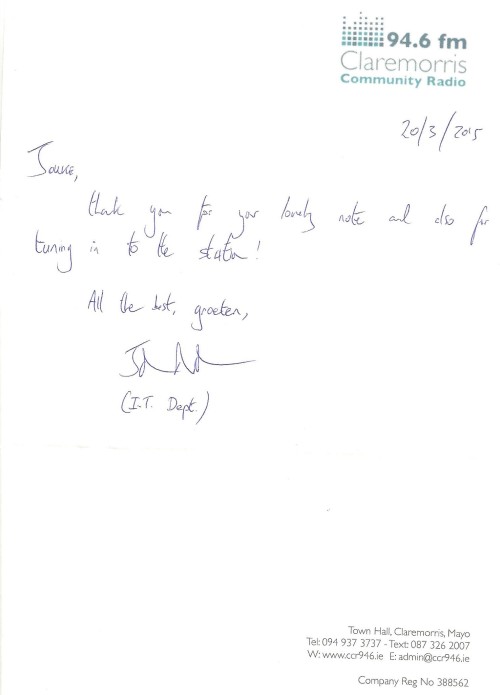 94.6 fm
Claremorris
Community Radio
20/3/2015
thank you for your lovely note and also for
tuning in to the station!
All the best, groeten,
(I.T. Dept.)
Town Hall, Claremorris, Mayo
Tel: 094 937 3737 - Text: 087 326 2007
W: www.ccr946.ie E: admin@ccr946.ie
Company Reg No 388562